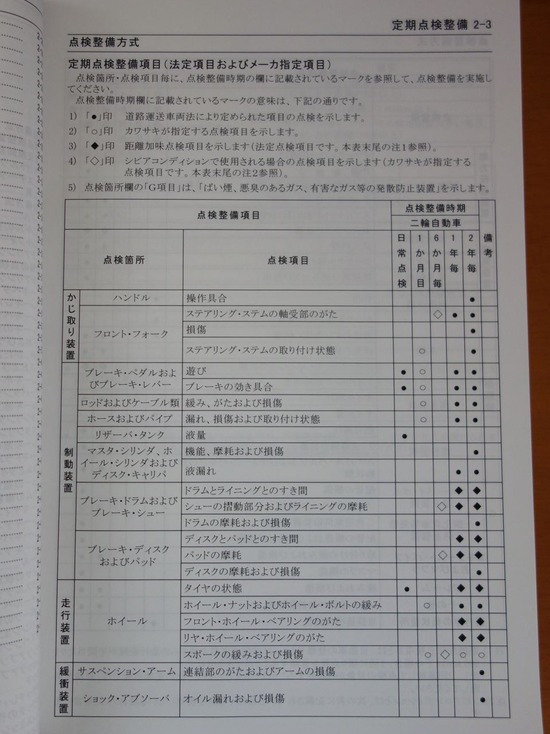 定期点検整備 2-3
点検整備方式
定期点検整備項目(法定項目およびメーカ指定項目)
点検箇所・点検項目毎に、点検整備時期の欄に記載されているマークを参照して、点検整備を実施し
てください。
点検整備時期欄に記載されているマークの意味は、下記の通りです。
1) 「●」印 道路運送車両法により定められた項目の点検を示します。
2) 「○」印 カワサキが指定する点検項目を示します。
3) 「◆」印 距離加味点検項目を示します(法定点検項目です。本表末尾の注1参照)。
4) 「◇」印 シビアコンディションで使用される場合の点検項目を示します(カワサキが指定する
点検項目です。本表末尾の注2参照)。
5) 点検箇所欄の「G項目」は、「ばい煙、悪臭のあるガス、有害なガス等の発散防止装置」を示します。
点検整備項目 点検整備時期
二輪自動車 備考
点検箇所 点検項目 日常点検 1か月目 6か月毎 1年毎 2年毎
かじ取り装置
ハンドル 操作具合 ●
フロント・フォーク ステアリング・ステムの軸受部のがた ◇ ● ●
損傷 ●
ステアリング・ステムの取り付け状態 ○ ●
制動装置
ブレーキ・ペダルおよびブレーキ・レバー 遊び ● ○ ● ●
ブレーキの効き具合 ● ○ ● ●
ロッドおよびケーブル類 緩み、がたおよび損傷 ○ ● ●
ホースおよびパイプ 漏れ、損傷および取り付け状態 ○ ● ●
リザーバ・タンク 液量 ●
マスタ・シリンダ、ホイール・シリンダおよびディスク・キャリパ 機能、摩耗および損傷 ●
液漏れ ● ●
ブレーキ・ドラムおよびブレーキ・シュー ドラムとライニングとのすき間 ◆ ◆
シューの摺動部分およびライニングの摩耗 ◇ ◆ ◆
ドラムの摩耗および損傷 ●
ブレーキ・ディスクおよびパッド ディスクとパッドとのすき間 ◆ ◆
パッドの摩耗 ◇ ◆ ◆
ディスクの摩耗および損傷 ●
走行装置
ホイール タイヤの状態 ● ◆ ◆
ホイール・ナットおよびホイール・ボルトの緩み ○ ● ●
フロント・ホイール・ベアリングのがた ◆ ◆
リヤ・ホイール・ベアリングのがた ◆ ◆
スポークの緩みおよび損傷 ○ ◇ ○ ○
緩衝装置
サスペンション・アーム 連結部のがたおよびアームの損傷 ●
ショック・アブソーバ オイル漏れおよび損傷 ●